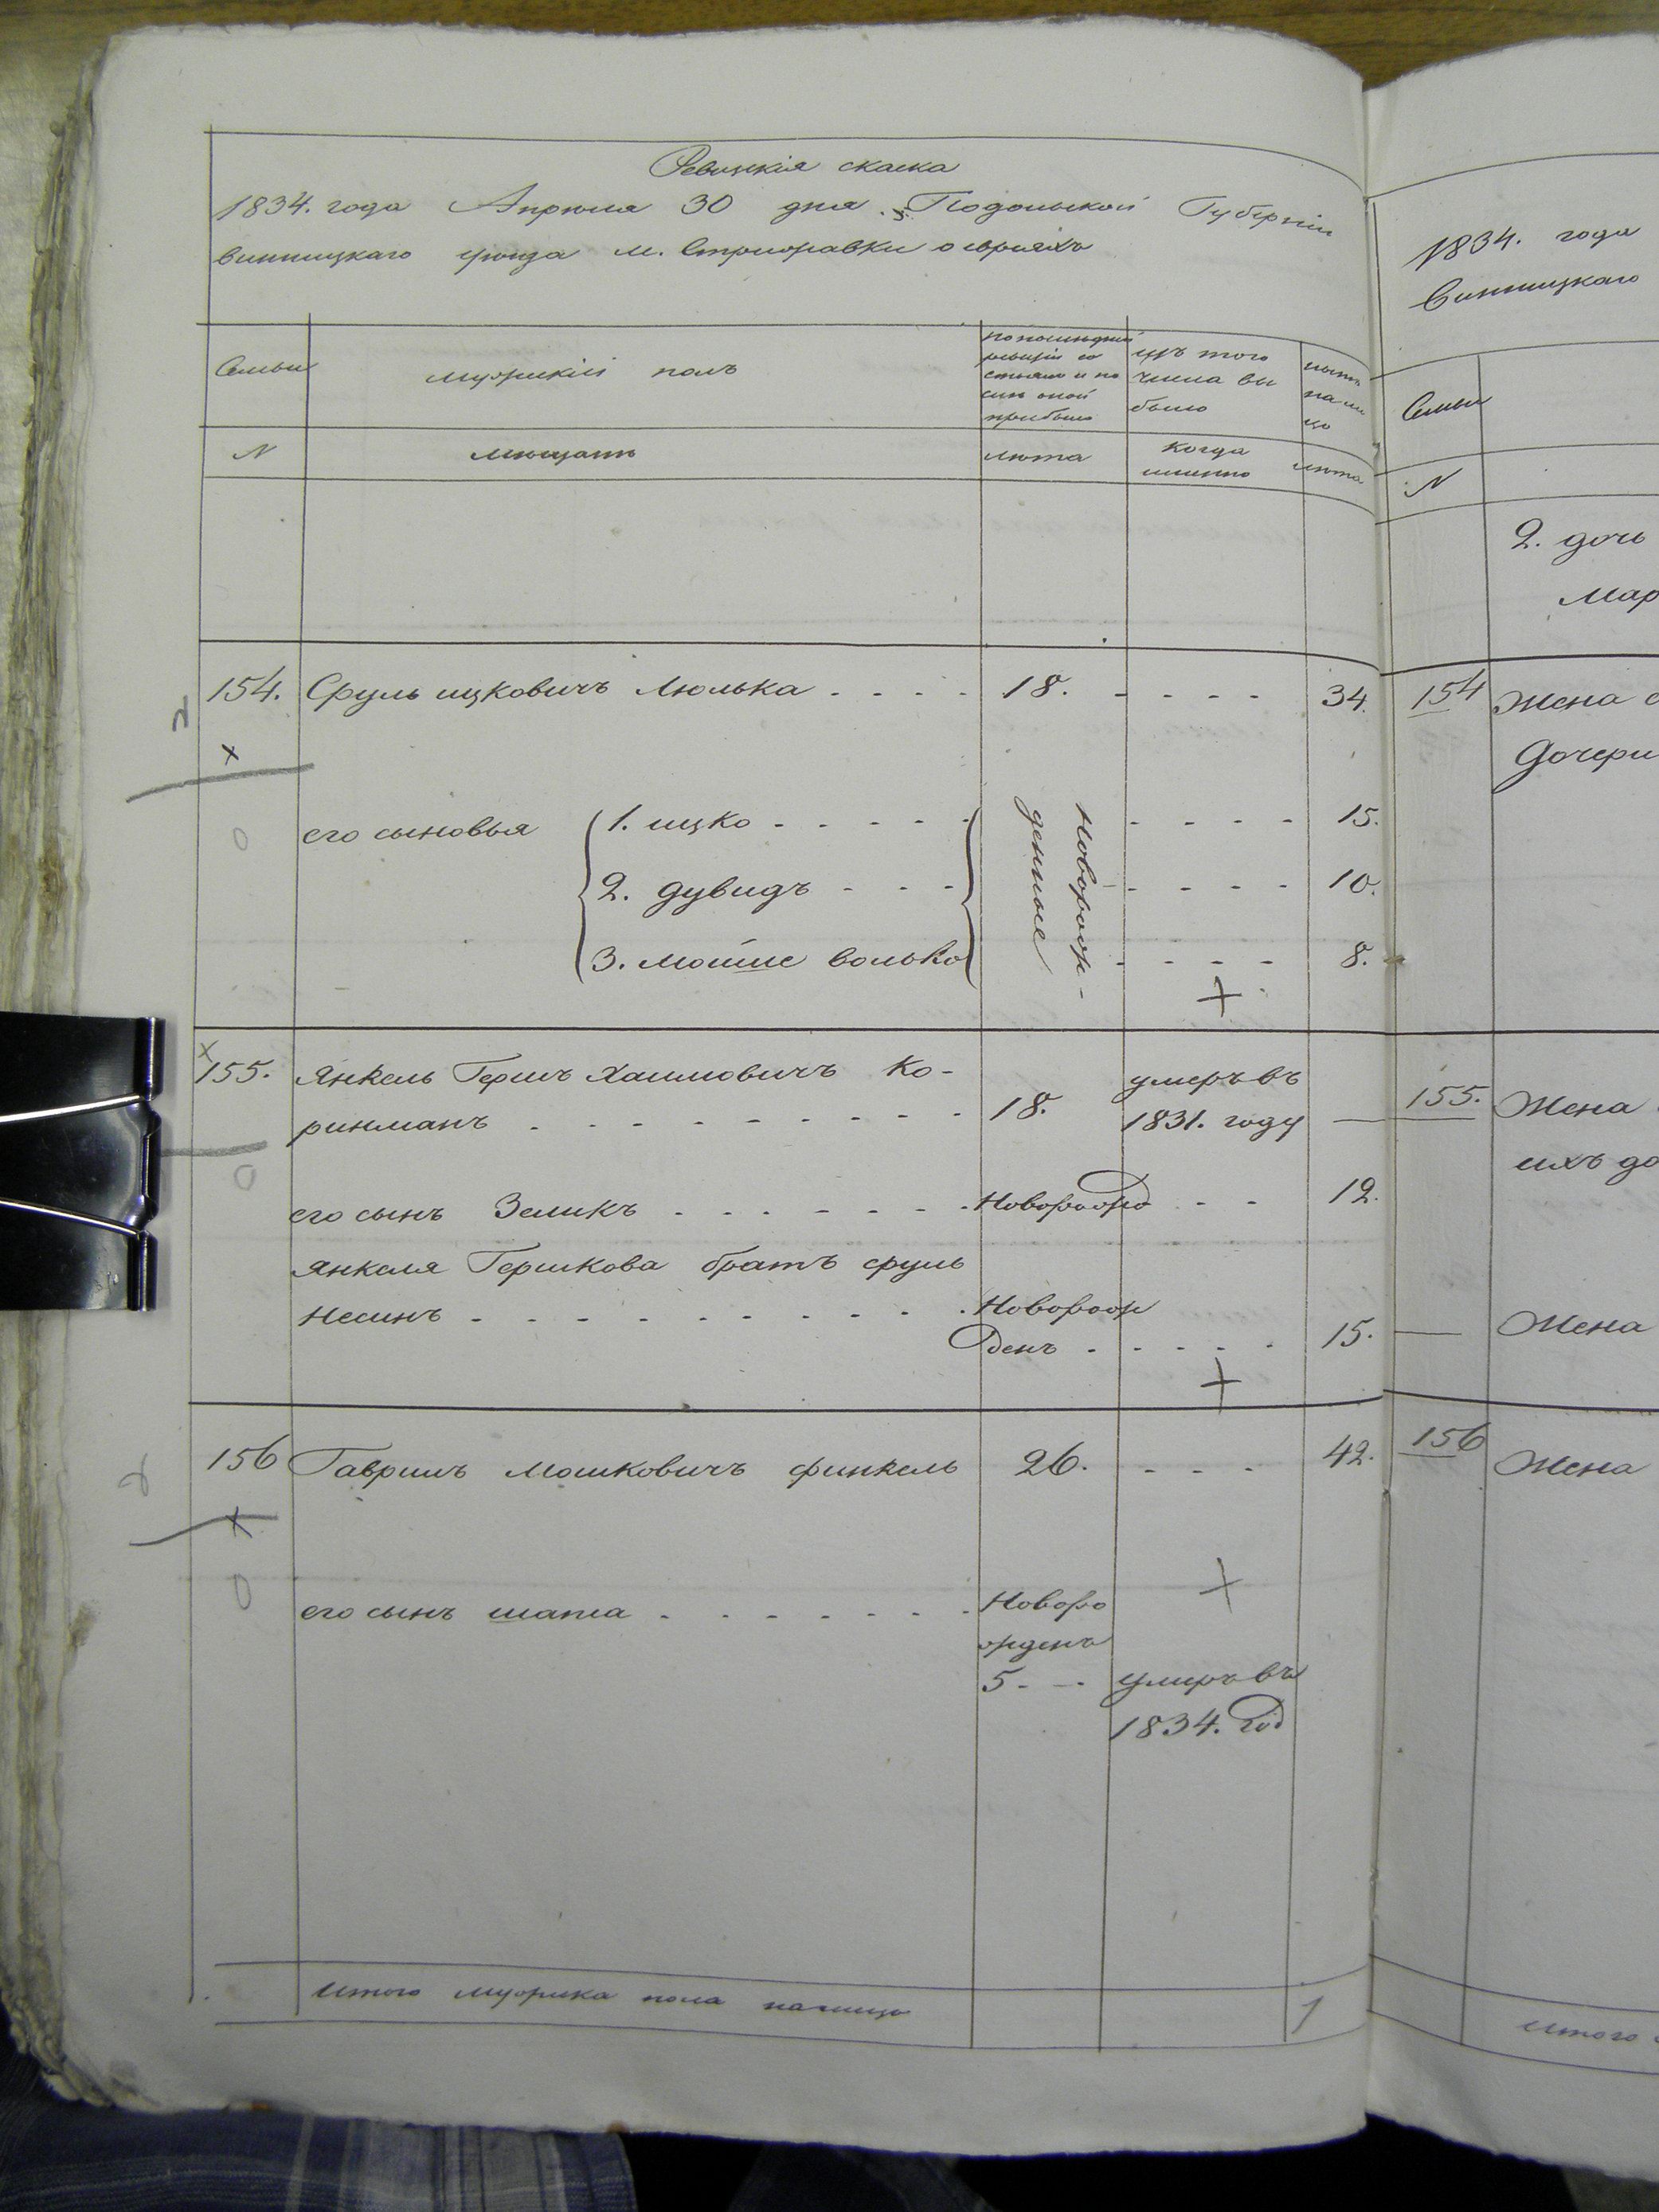 Ревизкія скаска
1834. года Апреля 30 дня. Подольской Губерніи
винницкаго уезда м. Стрижавки о евреяхъ
Семьи
мужескій полъ
по последней
ревизіи со
стояло и по
сле оной
прибыло
изъ того
числа вы
было
ныне
на ли
цо
N
мещане
лета
когда
именно
лета
154. Сруль ицковичъ Люлька - - - - 18. - - - - 34.
его сыновья
1. ицко - - - - - 15.
2. дувидъ - - - - 10.
3. мошие волько - - - - 8.
Новорож-
денные
155. Янкель Гершъ Хаимовичъ Ко-
ринманъ - - - - - - - - - 18. умеръ въ
1831. году —
его сынъ Зеликъ - - - - - - - Новорожд - - 12.
Янкеля Гершкова братъ сруль
Несинъ - - - - - - - - - Новорож
денъ - - - - - 15.
156 Гаврилъ Мошковичъ финкель 26. - - - 42.
его сынъ шапса - - - - - - - Новоро
жденъ
5 - - умеръ въ
1834. год
Итого мужеска пола налицо 1
1834. года
Винницкаго
Семьи
N
2. дочь
Мар
154 Жена е
Дочери
155. Жена
ихъ до
— Жена
156 Жена
Итого